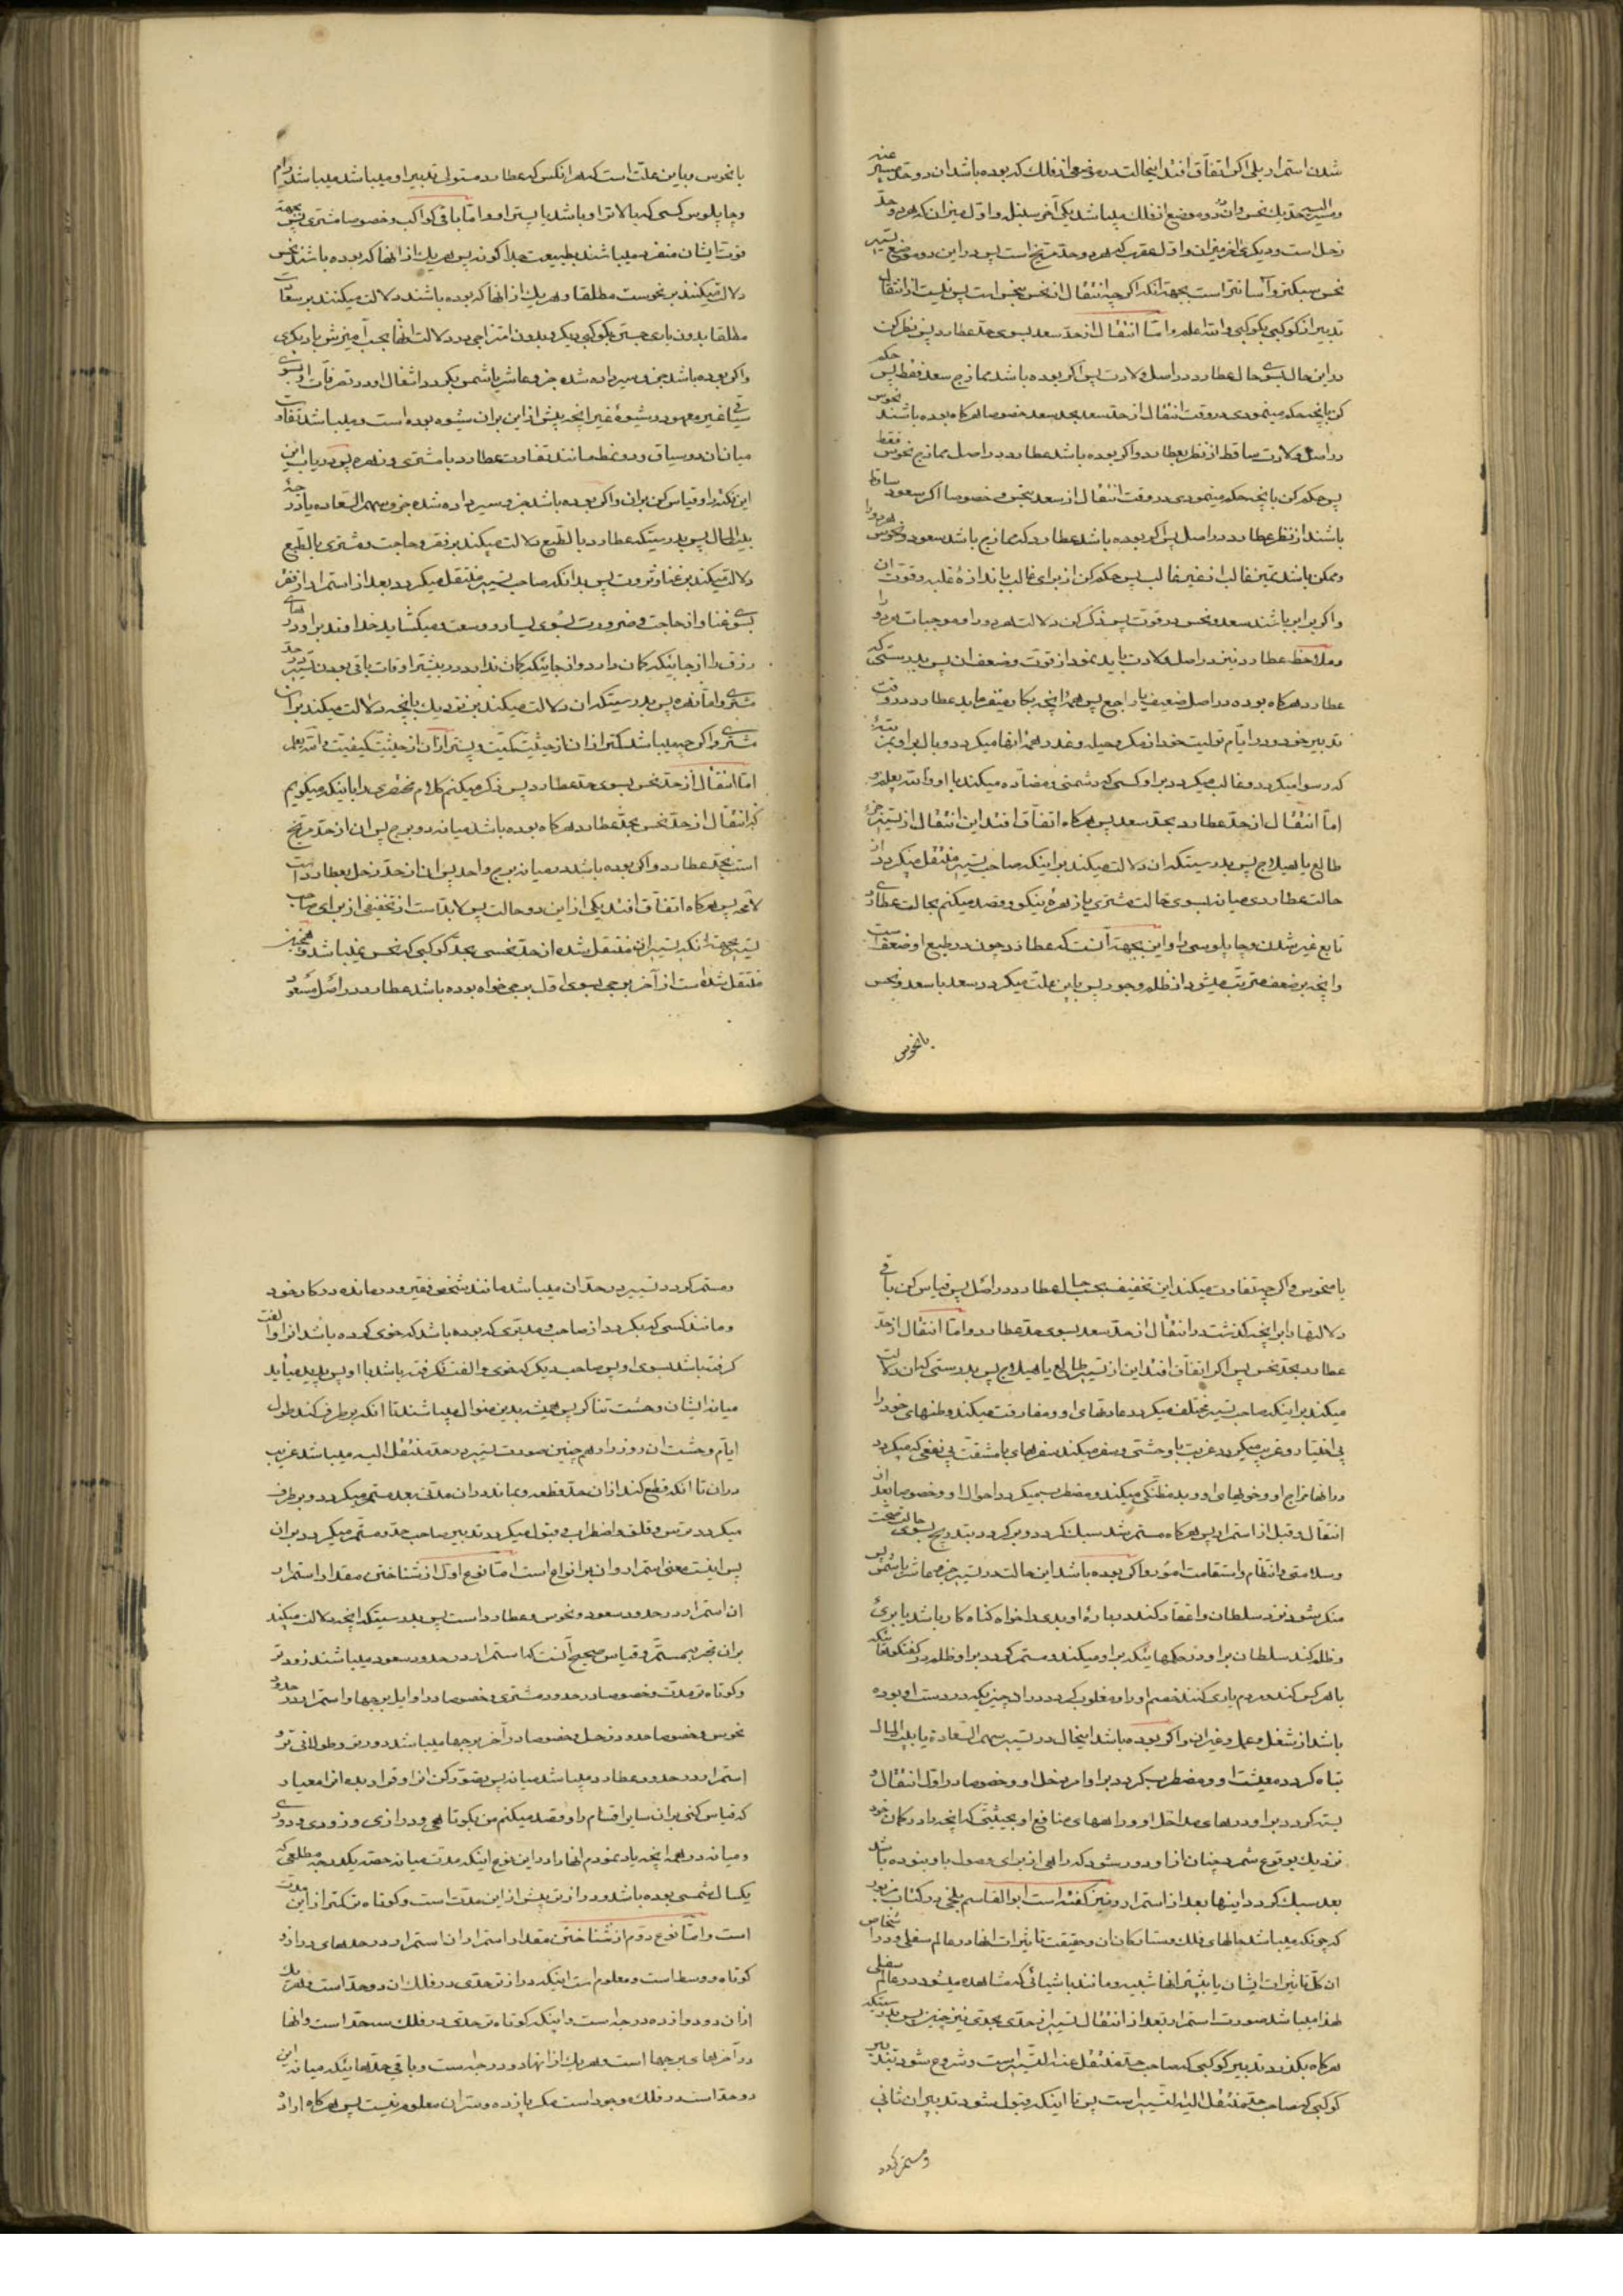 شدن استمرار بلی اکر اتفاق افتد اینحالت در موضعی از فلک که بوده باشد ان دو حد مسیر عنه
ومسیر الیه حد یک نحس وان دو موضع از فلک میباشد یکی آخر سنبله واول میزان که هر دو حد
زحل است ودیکری اخر میزان واول عقرب که هر دو حد مریخ است پس در این دو موضع تسییر
نحس سبکتر وآسانتر است بجهة آنکه اکر چه انتقال از نحس بنحس است پس نیست از انتقال
تدبیر از کوکبی بکوکبی والله اعلم وامّا انتقال از حدّ سعد بسوی حدّ عطارد پس نظر کن
در این حال بسوی حال عطارد در اصل ولادت پس اکر بوده باشد ممازج سعد فقط پس حکم
کن بانچه حکم مینمودی در وقت انتقال از حدّ سعد بحد سعد خصوصا هر کاه بوده باشند نحوس
در اصل ولادت ساقط از نظر بعطارد واکر بوده باشد عطارد در اصل ممازج نحوس فقط
پس حکم کن بانچه حکم مینمودی در وقت انتقال از سعد بنحس وخصوصا اکر سعود ساقط
باشند از نظر عطارد در اصل پس اکر بوده باشد عطارد که ممازج باشد سعود ونحوس هر دو را
وممکن باشد تمیز غالب از غیر غالب پس حکم کن از برای غالب باندازهٔ غلبه وقوت ان
واکر برابر باشند سعد ونحس در قوت پس ذکر کن دلالت هر دو را وموجبات هر دو را
وملاحظه عطارد نیز در اصل ولادت باید نمود از قوت وضعف ان پس بدرستی که
عطارد هر کاه بوده در اصل ضعیف یا راجع پس همهٔ انچه بکار میفرماید عطارد در وقت
تدبیر خود ودر ایّام تولیت خود از مکر وحیله وغدر همهٔ انها میکردد وبال بر او بمرتبهٔ
که رسوا میکردد وغالب میکردد بر او کسی که دشمنی ومضادّه میکند با او والله یعلم و
امّا انتقال از حدّ عطارد بحدّ سعد پس هر کاه اتفاق افتد این انتقال از تسییر جزءِ
طالع یا هیلاج پس بدرستیکه ان دلالت میکند بر اینکه صاحب تسییر منتقل میکردد از
حالت عطاردی میان بسوی حالت مشتری یا زهرهٔ نیکو وقصد میکنم بحالت عطاردی
تابع غیر شدن وچاپلوسی را واین بجهة آنست که عطارد چون در طبع او ضعف است
وانچه بر ضعف مترتّب میشود از ظلم وجور پس باین علّت میکردد سعد با سعد ونحس
بانحوس
بانحوس وباین علّت است که هر انکس که عطارد متولی تدبیر او میباشد میباشد رام
وچاپلوس کسی که بالاتر او باشد یا پستتر او وامّا باقی کواکب وخصوصا مشتری پس بجهة
قوت ایشان منفرد میباشند بطبیعت جداکونه پس هر یک از انها که بوده باشند نحس
دلالت میکنند بر نحوست مطلقا وهر یک از انها که بوده باشند دلالت میکنند بر سعادت
مطلقا بدون یاری جستن بکوکبی دیکر وبدون امتزاجی در دلالت انها بحسب آمیزش با دیکری
واکر بوده باشد جزءِ سیر داده شده جزءِ عاشر یا شمس بکردد اشغال او در تصرفات او بسوی
سیاقی غیر معهود وشیوهٔ غیر انچه پیش از این بر ان شیوه بوده است ومیباشد تفاوت
میان ان دو سیاق ودو نمط مانند تفاوت عطارد با مشتری وزهره پس دریاب این
این نکته را وقیاس کن بر ان واکر بوده باشد جزءِ سیر داده شده جزءِ سهم السّعاده یا درجهٔ
بیت المال پس بدرستیکه عطارد بالطّبع دلالت میکند بر فقر وحاجت ومشتری بالطّبع
دلالت میکند بر غنا وثروت پس بدانکه صاحب تسییر منتقل میکردد بعد از استمرار از فقر
بسوی غنا واز حاجت وضرورت بسوی یسار ووسعت ومیکشاید خداوند بر او درهای
رزق را از جائیکه کمان دارد واز جائیکه کمان ندارد در بیشتر اوقات باقی بودن تسییر در حدّ
مشتری وامّا زهره پس بدرستیکه ان دلالت میکند بر نزدیک بانچه دلالت میکند بر ان
مشتری واکر چه میباشد کمتر از ان از حیثیّت کمیّت وپستتر از ان از حیثیّت کیفیّت والله یعلم
امّا انتقال از حدّ نحس بسوی حدّ عطارد پس ذکر میکنم کلام مختصری را باینکه میکویم
که انتقال از حدّ نحس بحدّ عطارد هر کاه بوده باشد میانه دو برج پس ان از حدّ مریخ
است بحدّ عطارد واکر بوده باشد در میان برج واحد پس ان از حدّ زحل بعطارد است
لامحه پس هر کاه اتفاق افتد یکی از این دو حالت پس لابد است از تخفیفی از برای صاحب
تسییر بجهة انکه تسییر ان منتقل شده از حدّ نحسی بحدّ کوکبی که نحس نمیباشد وهمچنین
منتقل شده است از آخر برجی بسوی اول برجی خواه بوده باشد عطارد در اصل مسعود
یا منحوس واکر چه تفاوت میکند این تخفیف بحسب حال عطارد در اصل پس قیاس کن باقی
دلالتها را بر انچه کذشت در انتقال از حدّ سعد بسوی حدّ عطارد وامّا انتقال از حدّ
عطارد بحدّ نحس پس اکر اتفاق افتد این از تسییر طالع یا هیلاج پس بدرستی که ان دلالت
میکند بر اینکه صاحب تسییر مختلف میکردد عادتهای او ومفارقت میکند وطنهای خود را
بی اختیار وغریب میکردد غربت با وحشتی وسفر میکند سفرهای با مشقّت بی نفعی که میکردد
در انها مزاج او وخوهای او وبد مظنّکی میکند ومضطرب میکردد احوال او وخصوصا بعد از
انتقال وقبل از استمرار پس هر کاه مستمر شد سبک کردد وبرکردد بتدریج بسوی حالت صحّت
وسلامتی وانتظام واستقامت امور واکر بوده باشد این حالت در تسییر جزءِ عاشر یا شمس پس
منکر شود نزد سلطان واعتقاد کند در بارهٔ او بدی را خواه کناه کار باشد یا بریء
وظلم کند سلطان بر او در حکمهائیکه بر او میکند ومستمر کردد بر او ظلم در کفتکوهائیکه
با هر کس کند ومردم یاری کنند خصم او را ومغلوب کردد در ان چیزیکه در دست او بوده
باشد از شغل وعمل وغیر ان واکر بوده باشد اینحال در تسییر سهم السّعادة یا بیت المال
تباه کردد معیشت او ومضطرب کردد بر او امر دخل او وخصوصا در اول انتقال و
بسته کردد بر او درهای مداخل او وراههای منافع او بحیثیّتی که انچه را در کمان خود
نزدیک بوقوع شمرد چنان از او دور شود که راهی از برای وصول باو نبوده باشد
بعد سبک کردد اینها بعد از استمرار ونیز کفته است ابو القاسم بلخی در کتاب مزبور
که چونکه میباشد حالهای فلک وستارکان ان وحقیقت تاثیرات انها در عالم سفلی ودر اشخاص
ان کلّ تاثیرات ایشان یا بیشتر انها شبیه ومانند باشیائی که مشاهده میشود در عالم سفلی
لهذا میباشد صورت استمرار بعد از انتقال تسییر از حدّی بحدّی نیز چنین پس بدرستیکه
هر کاه بکذرد تدبیر کوکبی که صاحب حدّ منتقل عنه التّسییر است وشروع شود بتدبیر
کوکبی که صاحب حدّ منتقل الیه التّسییر است پس تا اینکه قبول شود تدبیر ان ثانی
ومستمر کردد
ومستمر کردد تسییر در حدّ ان میباشد مانند شخص فقیر ودرمانده در کار خود
ومانند کسی که بکردد از صاحب قدیمی که بوده باشد که خوی کرده باشد انرا والفت
کرفته باشد بسوی او پس صاحب دیکر که خوی والفت نکرفته باشد با او پس پدید میآید
میانه ایشان وحشت وتناکر پس همیشه بدین منوال میباشند تا انکه برطرف کند طول
ایّام وحشت ان دوزرا وهمچنین صورت تسییر در حدّ منتقل الیه میباشد غریب
در ان تا انکه قطع کند از ان حدّ قطعه وبماند در ان مدتی بعد مستمر میکردد وبرطرف
میکردد ترس وقلق واضطراب وقبول میکردد تدبیر صاحب حدّ ومستمر میکردد بر ان
پس اینست معنی استمرار وان بر انواع است امّا نوع اول از شناختن مقدار استمرار
ان استمرار در حدود سعود ونحوس وعطارد است پس بدرستیکه انچه دلالت میکند
بر ان تجربه مستمرّ وقیاس صحیح آنست که استمرار در حدود سعود میباشند زودتر
وکوتاه‌تر مدت وخصوصا در حدود مشتری وخصوصا در اوایل برجها واستمرار در حدود
نحوس وخصوصا حدود زحل وخصوصا در آخر برجها میباشد دورتر وطولانی‌تر و
استمرار در حدود عطارد میباشد میانه پس تصوّر کن انرا وقرار بده انرا معیار
که قیاس کنی بر ان سایر اقسام را وقصد میکنم من بکوتاهی ودرازی وزودی ودوری
ومیانه در همهٔ انچه یاد نمودم انها را در این نوع اینکه مدّت میانه حصّه یکدرجه مطلعی که
یکسال شمسی بوده باشد ودرازتر بیش از این مدّت است وکوتاه‌تر کمتر از این مدّت
است وامّا نوع دوّم از شناختن مقدار استمرار ان استمرار در حدهای دراز و
کوتاه ووسط است ومعلوم است اینکه درازتر حدّی در فلک ان دو حدّ است وهر یک
از ان دو دوازده درجه است واینکه کوتاه‌تر حدّی در فلک سه حدّ است وانها
در آخرهای برجها است وهر یک از انها دو درجه است وباقی حدّهائیکه میانه این
دو حدّ است در فلک موجود است مکر یازده وستر ان معلوم نیست پس هر کاه اراده